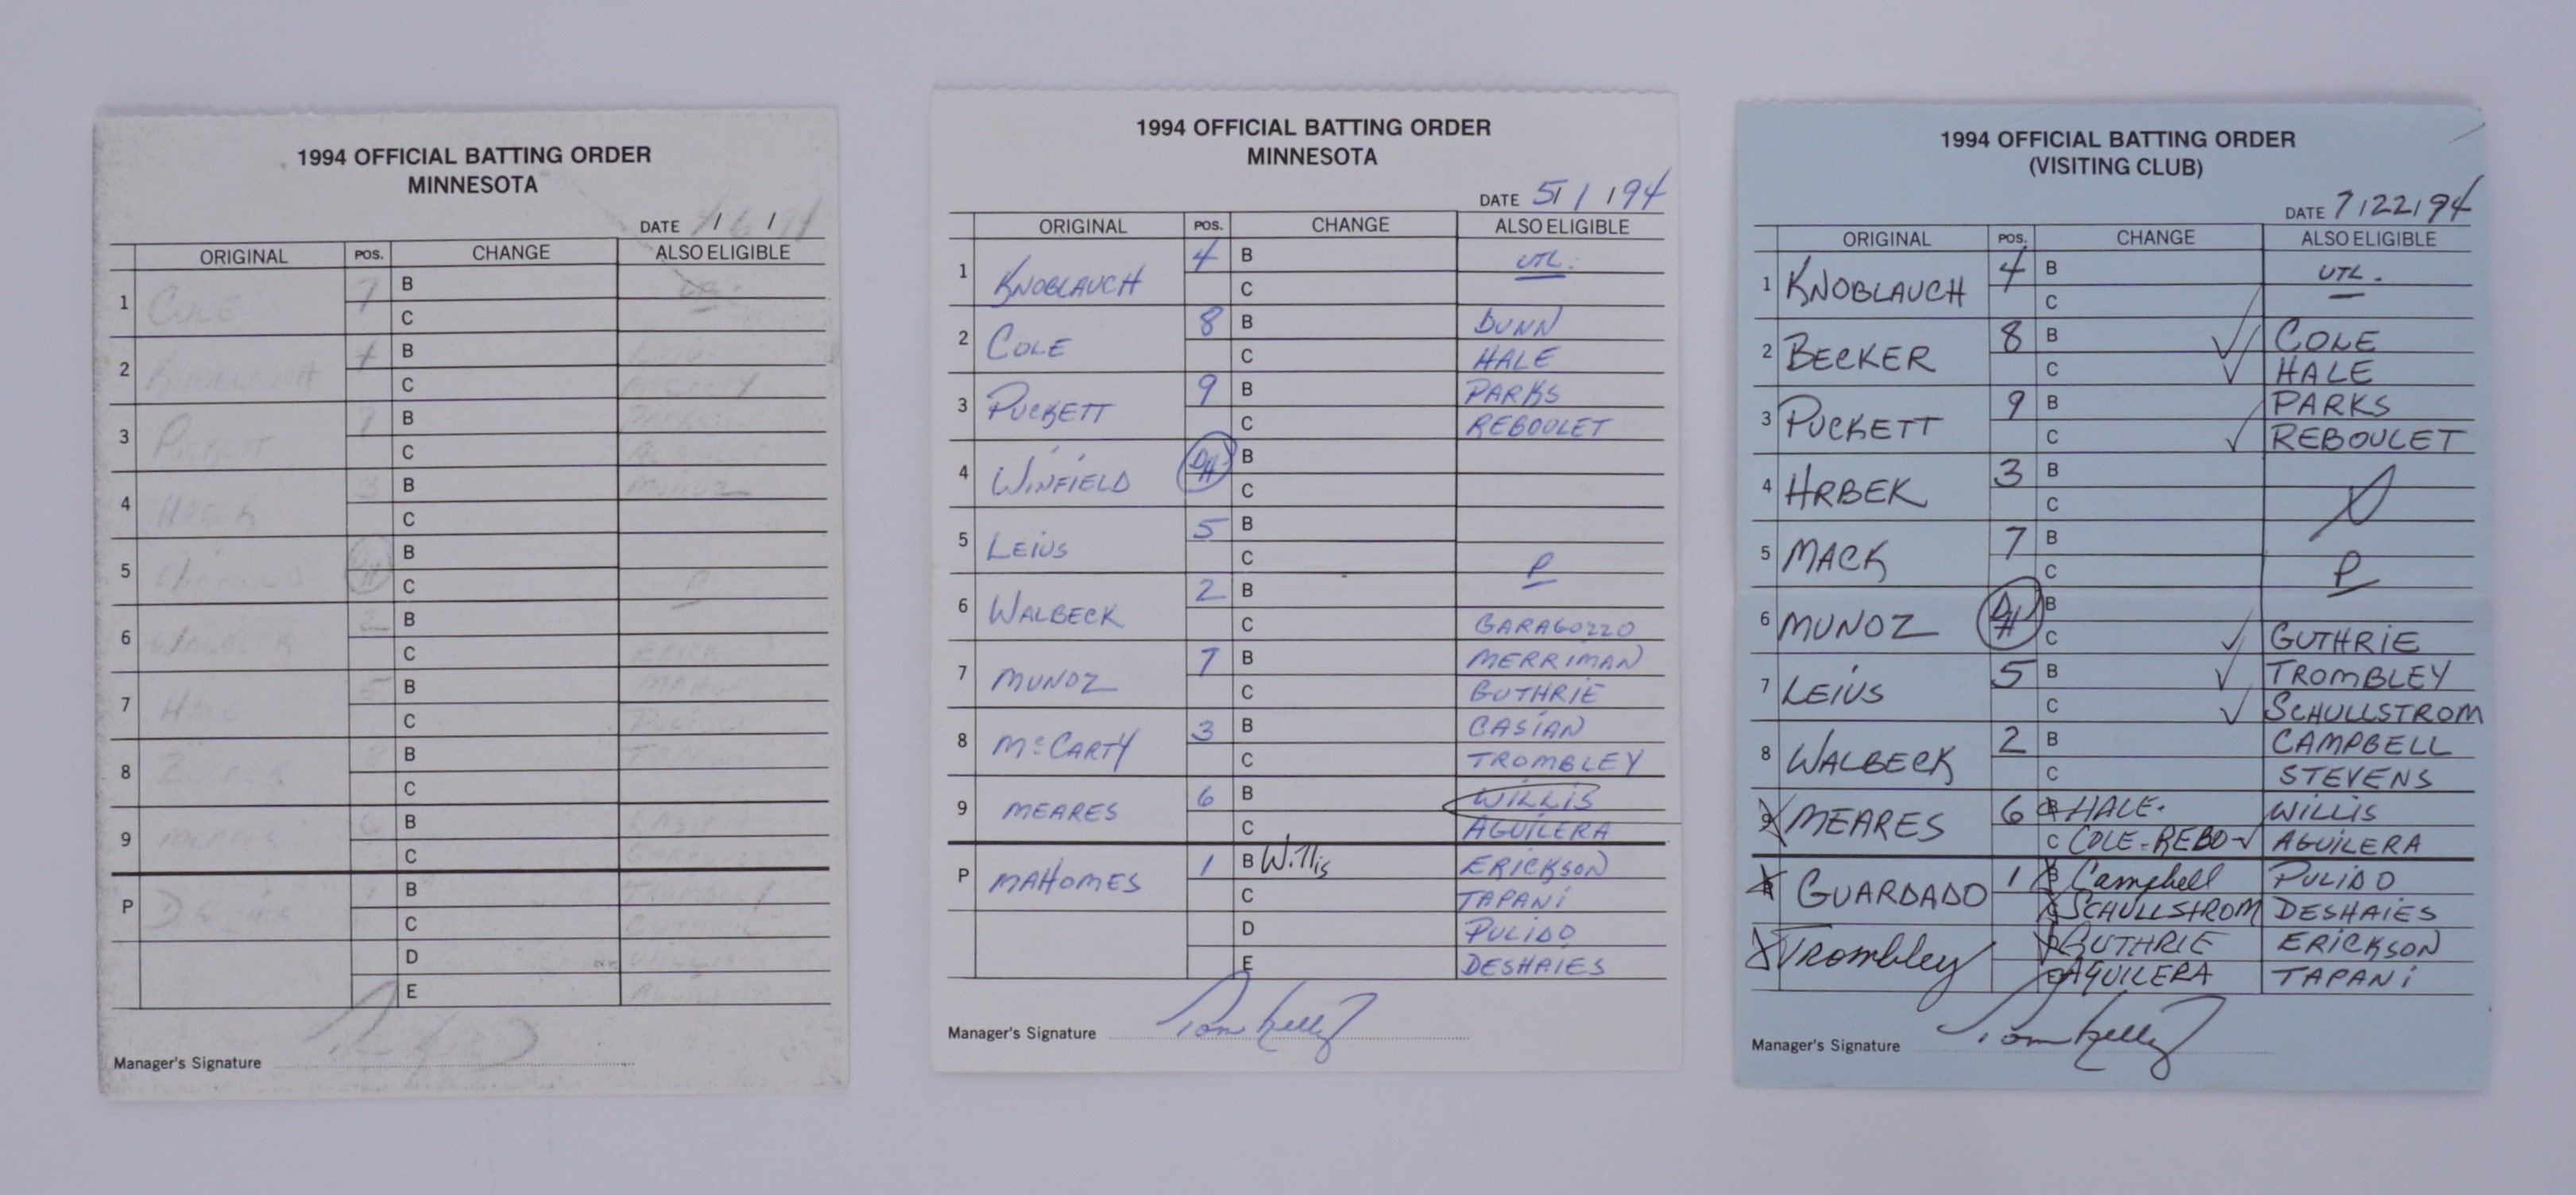 1994 OFFICIAL BATTING ORDER
MINNESOTA
DATE / /
ORIGINAL POS. CHANGE ALSO ELIGIBLE
1 COLE 7 B
C
2 KNOBLAUCH 4 B
C
3 PUCKETT 9 B
C
4 HRBEK 3 B
C MUNOZ
5 DH B
C P
6 WALBECK 2 B
C
7 HALE 5 B
C PULIDO
8 8 B
C
9 MEARES 6 B CASIAN
C
P B TROMBLEY
C GUTHRIE
D WILLIS
E
Manager's Signature
1994 OFFICIAL BATTING ORDER
MINNESOTA
DATE 5/1/94
ORIGINAL POS. CHANGE ALSO ELIGIBLE
1 KNOBLAUCH 4 B UTL.
C
2 COLE 8 B DUNN
C HALE
3 PUCKETT 9 B PARKS
C REBOULET
4 WINFIELD DH B
C
5 LEIUS 5 B
C P
6 WALBECK 2 B
C GARAGOZZO
7 MUNOZ 7 B MERRIMAN
C GUTHRIE
8 McCARTY 3 B CASIAN
C TROMBLEY
9 MEARES 6 B WILLIS
C AGUILERA
P MAHOMES 1 B Willis ERICKSON
C TAPANI
D PULIDO
E DESHAIES
Manager's Signature Tom Kelly
1994 OFFICIAL BATTING ORDER
(VISITING CLUB)
DATE 7/22/94
ORIGINAL POS. CHANGE ALSO ELIGIBLE
1 KNOBLAUCH 4 B UTL.
C
2 BECKER 8 B COLE
C HALE
3 PUCKETT 9 B PARKS
C REBOULET
4 HRBEK 3 B
C
5 MACK 7 B
C P
6 MUNOZ DH B
C GUTHRIE
7 LEIUS 5 B TROMBLEY
C SCHULLSTROM
8 WALBECK 2 B CAMPBELL
C STEVENS
9 MEARES 6 B HALE. WILLIS
C COLE-REBO AGUILERA
P GUARDADO 1 B Campbell PULIDO
C SCHULLSTROM DESHAIES
Trombley D GUTHRIE ERICKSON
E AGUILERA TAPANI
Manager's Signature Tom Kelly